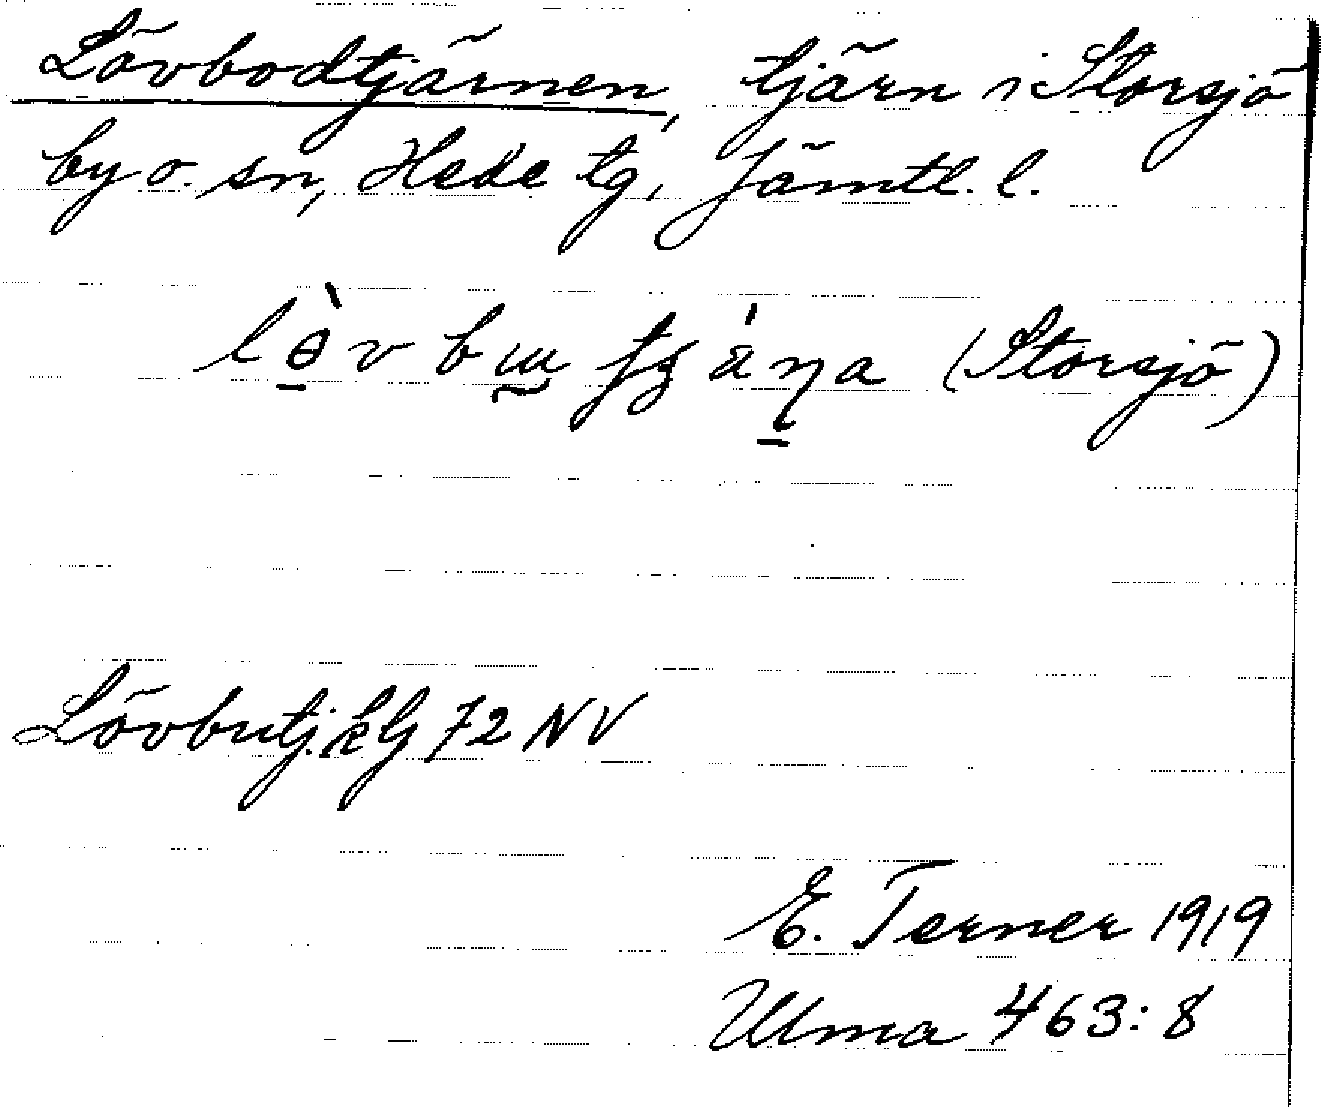 Lövbodtjärnen, tjärn i Storsjö
by o. sn, Hede tg, Jämtl. l.
(Storsjö)
Lövbutj.klj 72 NV
E. Terner 1919
Ulma 463:8